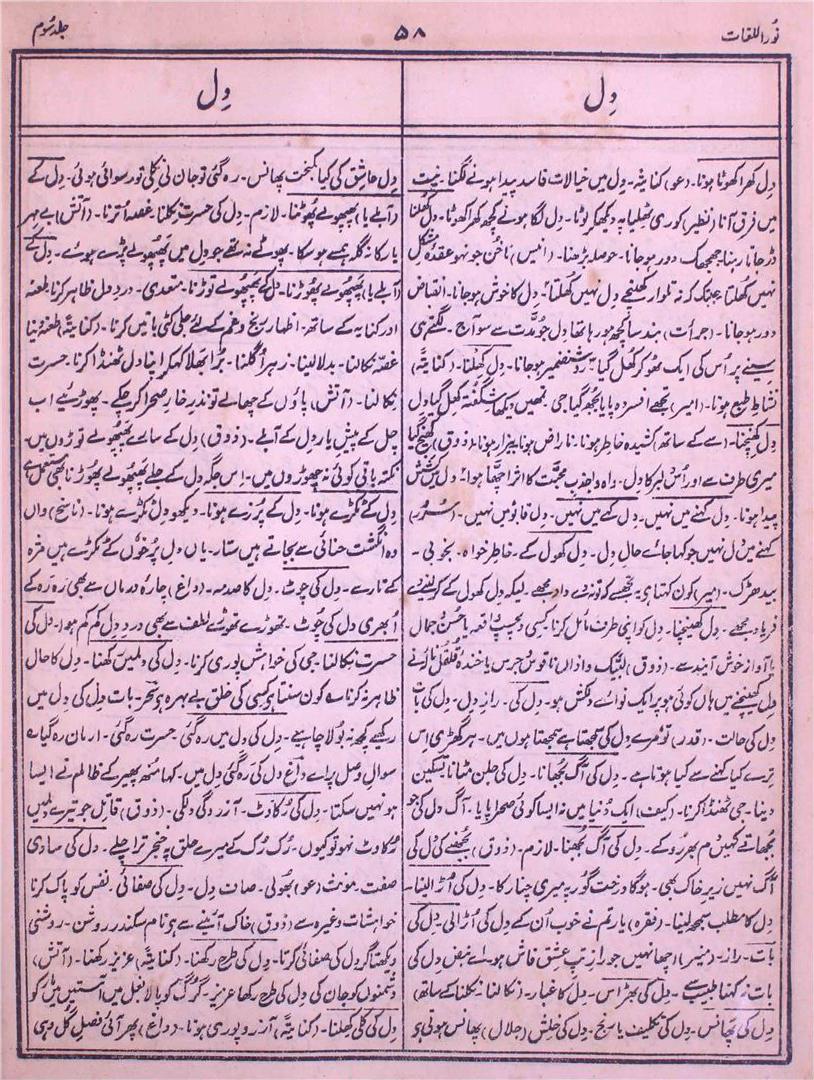 نُور اللغات
۵۸
جلد سُوم
دِل
دِل
دِل کھرا کھوٹا ہونا۔ (عو) کنایۃً۔ دِل میں خیالات فاسد پیدا ہونے لگنا۔ نیت
میں فرق آنا (نظیر) کوری ٹھلیا پہ دیکھ کر لوٹا۔ دِل لگا ہونے کچھ کھرا کھوٹا۔ دِل کھلنا
ڈر جاتا رہنا۔ جھجھک دور ہو جانا۔ حوصلہ بڑھنا۔ (انیس) ناخن جو نہ ہو عقدۂ مشکل
نہیں کھلتا جبتک کہ نہ تلوار کھنچے دِل نہیں کھلتا۔ دِل کا خوش ہو جانا۔ انقباض
دور ہو جانا۔ (جرأت) بند سا کچھ ہو رہا تھا دِل جو مُدّت سے سو آج۔ لگتے ہی
سینے پر اُس کی ایک ٹھوکر کُھل گیا۔ روشنضمیر ہو جانا۔ دِل کِھلنا۔ (کنایۃً)
نشاط طبع ہونا۔ (امیر) تجھے افسردہ پایا بجھ گیا جی تمھیں دیکھا شگفتہ کِھل گیا دِل
دِل کھنچنا۔ (سے کے ساتھ) کشیدہ خاطر ہونا۔ ناراض ہونا۔ بیزار ہونا۔ (ذوق) کھنچ گیا
میری طرف سے اور اُس دلبر کا دِل۔ واہ وا جذبِ محبّت کا اثر اچھّا ہوا۔ دِل میں کشش
پیدا ہونا۔ دِل کہنے میں نہیں۔ دِل کہے میں نہیں۔ دِل قابو میں نہیں۔ (سُرُور)
کہنے میں دِل نہیں جو کہا جائے حالِ دِل۔ دِل کھول کے۔ خاطر خواہ۔ بخوبی۔
بیدھڑک۔ (میر) کون کہتا ہے تجھسے کہ تو نہ دے داد مجھے۔ لیک دِل کھول کے کر لینے دے
فریاد مجھے۔ دِل کھینچنا۔ دِل کو اپنی طرف مائل کرنا کسی دلچسپ واقعہ یا حُسن و جمال
یا آواز خوش آیند سے۔ (ذوق) لبّیک و اذاں ناقوس جرس یا خندۂ قلقل نالۂ نے
دِل کھینچنے میں ہاں کوئی ہو پر ایک نوائے دلکش ہو۔ دِل کی۔ رازِ دِل۔ دِل کی بات
دِل کی حالت۔ (قدر) تو مرے دِل کی سمجھتا ہے سمجھتا ہوں میں۔ ہر گھڑی اس
ترے کیا کہنے سے کیا ہوتا ہے۔ دِل کی آگ بُجھانا۔ دِل کی جلن مٹانا۔ تسکین
دینا۔ جی ٹھنڈا کرنا۔ (کیف) ایک دُنیا میں نہ ایسا کوئی صحرا پایا۔ آگ دِل کی جو
بُجھاتے کہیں ہم بھر رو کے۔ دِل کی آگ بُجھنا۔ لازم۔ (ذوق) بُجھنے کی دِل کی
آگ نہیں زیرِ خاک بھی۔ ہوگا درخت گور پہ میری چنار کا۔ دِل کی اُڑا لینا۔
دِل کا مطلب سمجھ لینا۔ (فقرہ) یار تم نے خوب اُن کے دِل کی اُڑالی۔ دِل کی
بات۔ راز۔ (منیر) اچھا نہیں جو رازِ تپِ عشق فاش ہو۔ اے نبض دِل کی
بات نہ کہنا طبیب سے۔ دِل کی بھڑاس۔ دِل کا غبار۔ (نکالنا نکلنا کے ساتھ)
دِل کی پھانس۔ دِل کی تکلیف یا رنج۔ دِل کی خلش (جلال) پھانس ہوئی ہو
دِل عاشق کی کیا کمبخت پھانس۔ رہ گئی تو جان لی نکلی تو رسوائی ہوئی۔ دِل کے
(آبلے یا) پھپھولے پُھوٹنا۔ لازم۔ دِل کی حسرت نکلنا۔ غصہ اُترنا۔ (آتش) بے مہر
یار کا نہ گلہ ہم سے ہو سکا۔ پھوٹے نہ تھے جو دِل میں پھپھولے پڑے ہوئے۔ دِل کے
(آبلے یا) پھپھولے پھوڑنا۔ دِل کے پھپھولے توڑنا۔ متعدی۔ دردِ دِل ظاہر کرنا۔ طعنہ
اور کنایہ کے ساتھ۔ اظہارِ رنج و غم کے لئے جلی کٹی باتیں کرنا۔ (کنایۃً) طعنہ دینا
غصّہ نکالنا۔ بدلا لینا۔ زہر اُگلنا۔ بُرا بھلا کہکر اپنا دِل ٹھنڈا کرنا۔ حسرت
نکالنا۔ (آتش) پاؤں کے چھالے تو نذرِ خارِ صحرا کر چکے۔ پھوڑیے اب
چل کے پیشِ یار دِل کے آبلے۔ (ذوق) دِل کے سارے پھپھولے توڑوں میں۔
نکتہ باقی کوئی نہ چھوڑوں میں۔ اِس جگہ دِل کے جلے پھپھولے پھوڑنا بھی مستعمل ہے
دِل کے ٹکڑے ہونا۔ دِل کے پُرزے ہونا۔ دیکھو دِل ٹکڑے ہونا۔ (ناسخ) واں
وہ انگشتِ حنائی سے بجاتے ہیں ستار۔ یاں دِل پُر خُوں کے ٹکڑے ہیں مژہ
کے تارے۔ دِل کی چوٹ۔ دِل کا صدمہ۔ (داغ) چارہ و درماں سے بھی رہ رہ کے
اُبھری دِل کی چوٹ۔ تھوڑے تھوڑے لطف سے بھی دردِ دِل کم کم ہوا۔ دِل کی
حسرت نکالنا۔ جی کی خواہش پوری کرنا۔ دِل کی دِلمیں رکھنا۔ دِل کا حال
ظاہر نہ کرنا۔ کون سنتا ہے کسی کی خلق بے بہرہ ہے بحر۔ بات دِل کی دِل میں
رکھیے کچھ نہ بولا چاہیے۔ دِل کی دِل میں رہ گئی۔ حسرت رہ گئی۔ ارمان رہ گیا۔
سوالِ وصل پر اے داغ دِل کی رہ گئی دِل میں۔ کہا منھ پھیر کے ظالم نے ایسا
ہو نہیں سکتا۔ دِل کی رُکاوٹ۔ آزردگی دِلکی۔ (ذوق) قاتل جو تیرے دِلمیں
رُکاوٹ نہو تو کیوں۔ رُک رُک کے میرے حلق پہ خنجر ترا چلے۔ دِل کی سادی
صفت۔ مؤنث (عو) بھولی۔ صاف دِل۔ دِل کی صفائی۔ نفس کو پاک کرنا
خواہشات وغیرہ سے (ذوق) خاک آئینے سے ہے نامِ سکندر روشن۔ روشنی
دیکھتا گر دِل کی صفائی کرتا۔ دِل کی طرح رکھنا۔ (کنایۃً) عزیز رکھنا۔ (آتش)
دشمنوں کو جان کی دِل کی طرح رکھا عزیز۔ گرگ کو پالا بغل میں آستیں میں مار کو
دِل کی کلی کِھلنا۔ (کنایۃً) آرزو پوری ہونا۔ (داغ) پھر آئی فصلِ گُل وہی